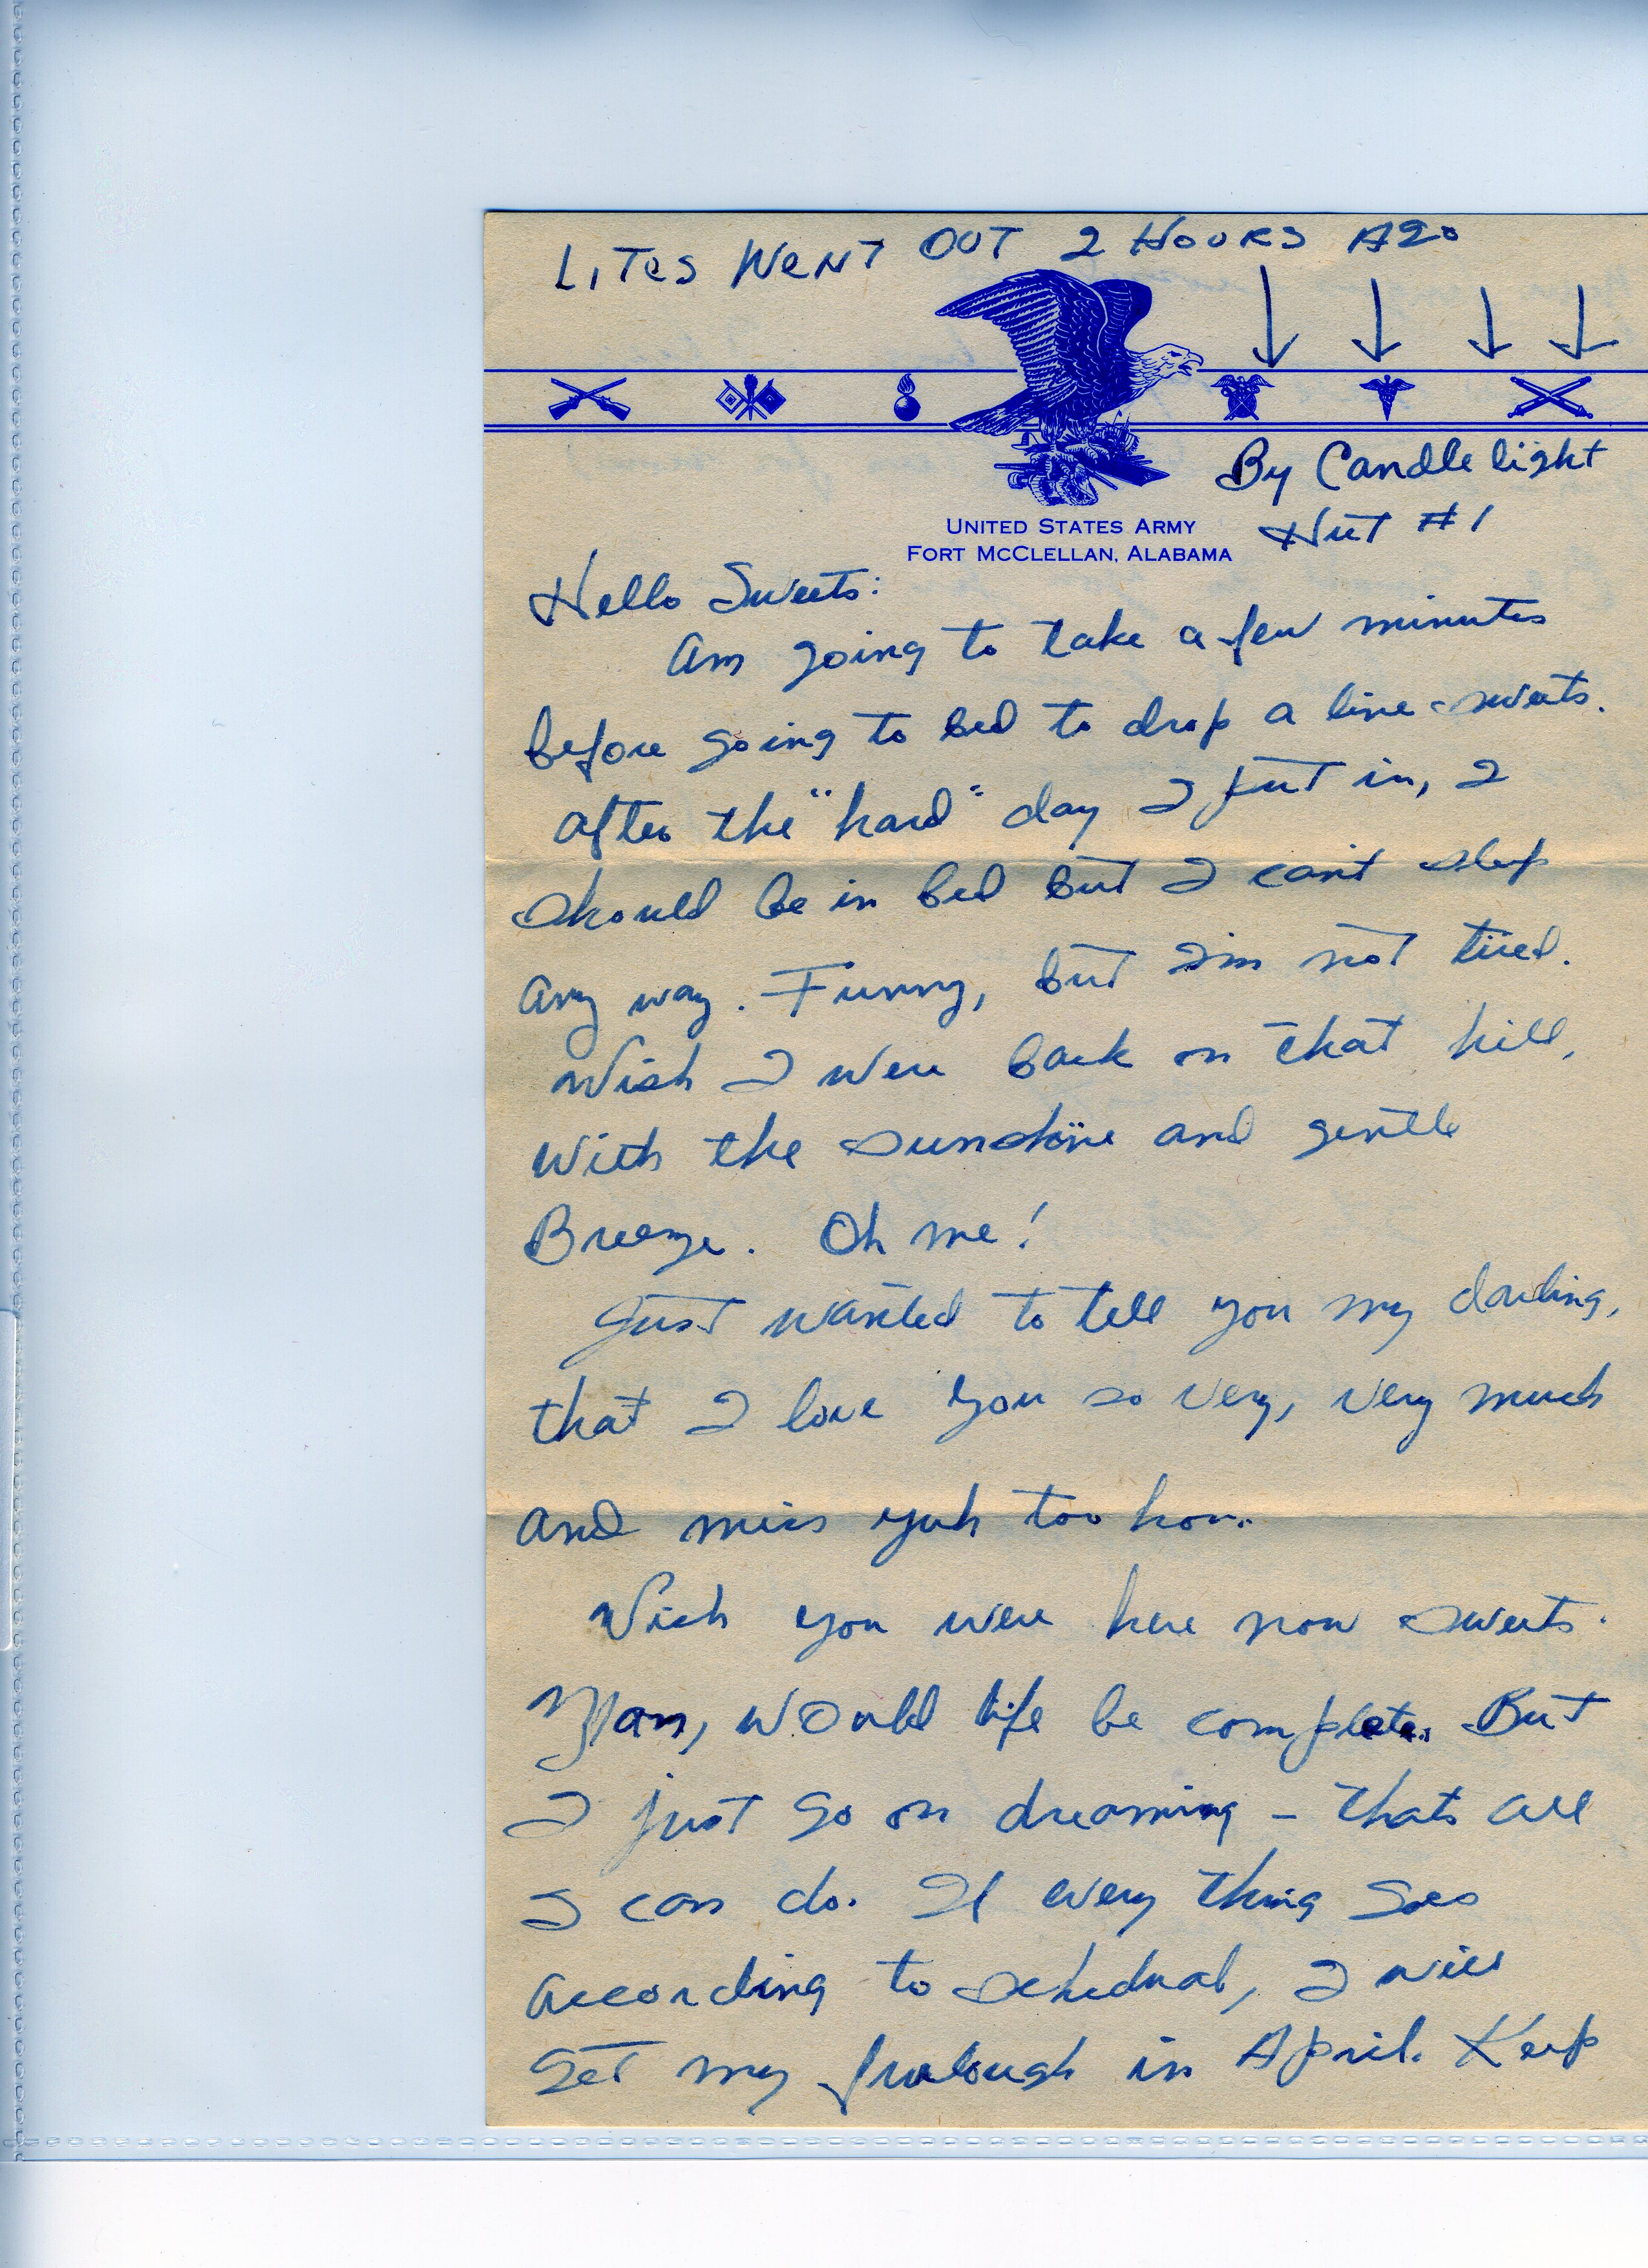 LITES WENT OUT 2 HOURS AGO
By Candle light
Hut #1
UNITED STATES ARMY
FORT MCCLELLAN, ALABAMA
Hello Sweets:
Am going to take a few minutes
before going to bed to drop a line - sweets.
After the "hard" day I put in, I
should be in bed but I can't sleep
any way. Funny, but I'm not tired.
Wish I were back on that hill,
with the sunshine and gentle
Breeze. Oh me!
Just wanted to tell you my darling,
that I love you so very, very much
and miss yuh too hon.
Wish you were here now sweets.
Mam, would life be complete. But
I just go on dreaming - thats all
I can do. If every thing goes
according to schedual, I will
get my furlough in April. Keep